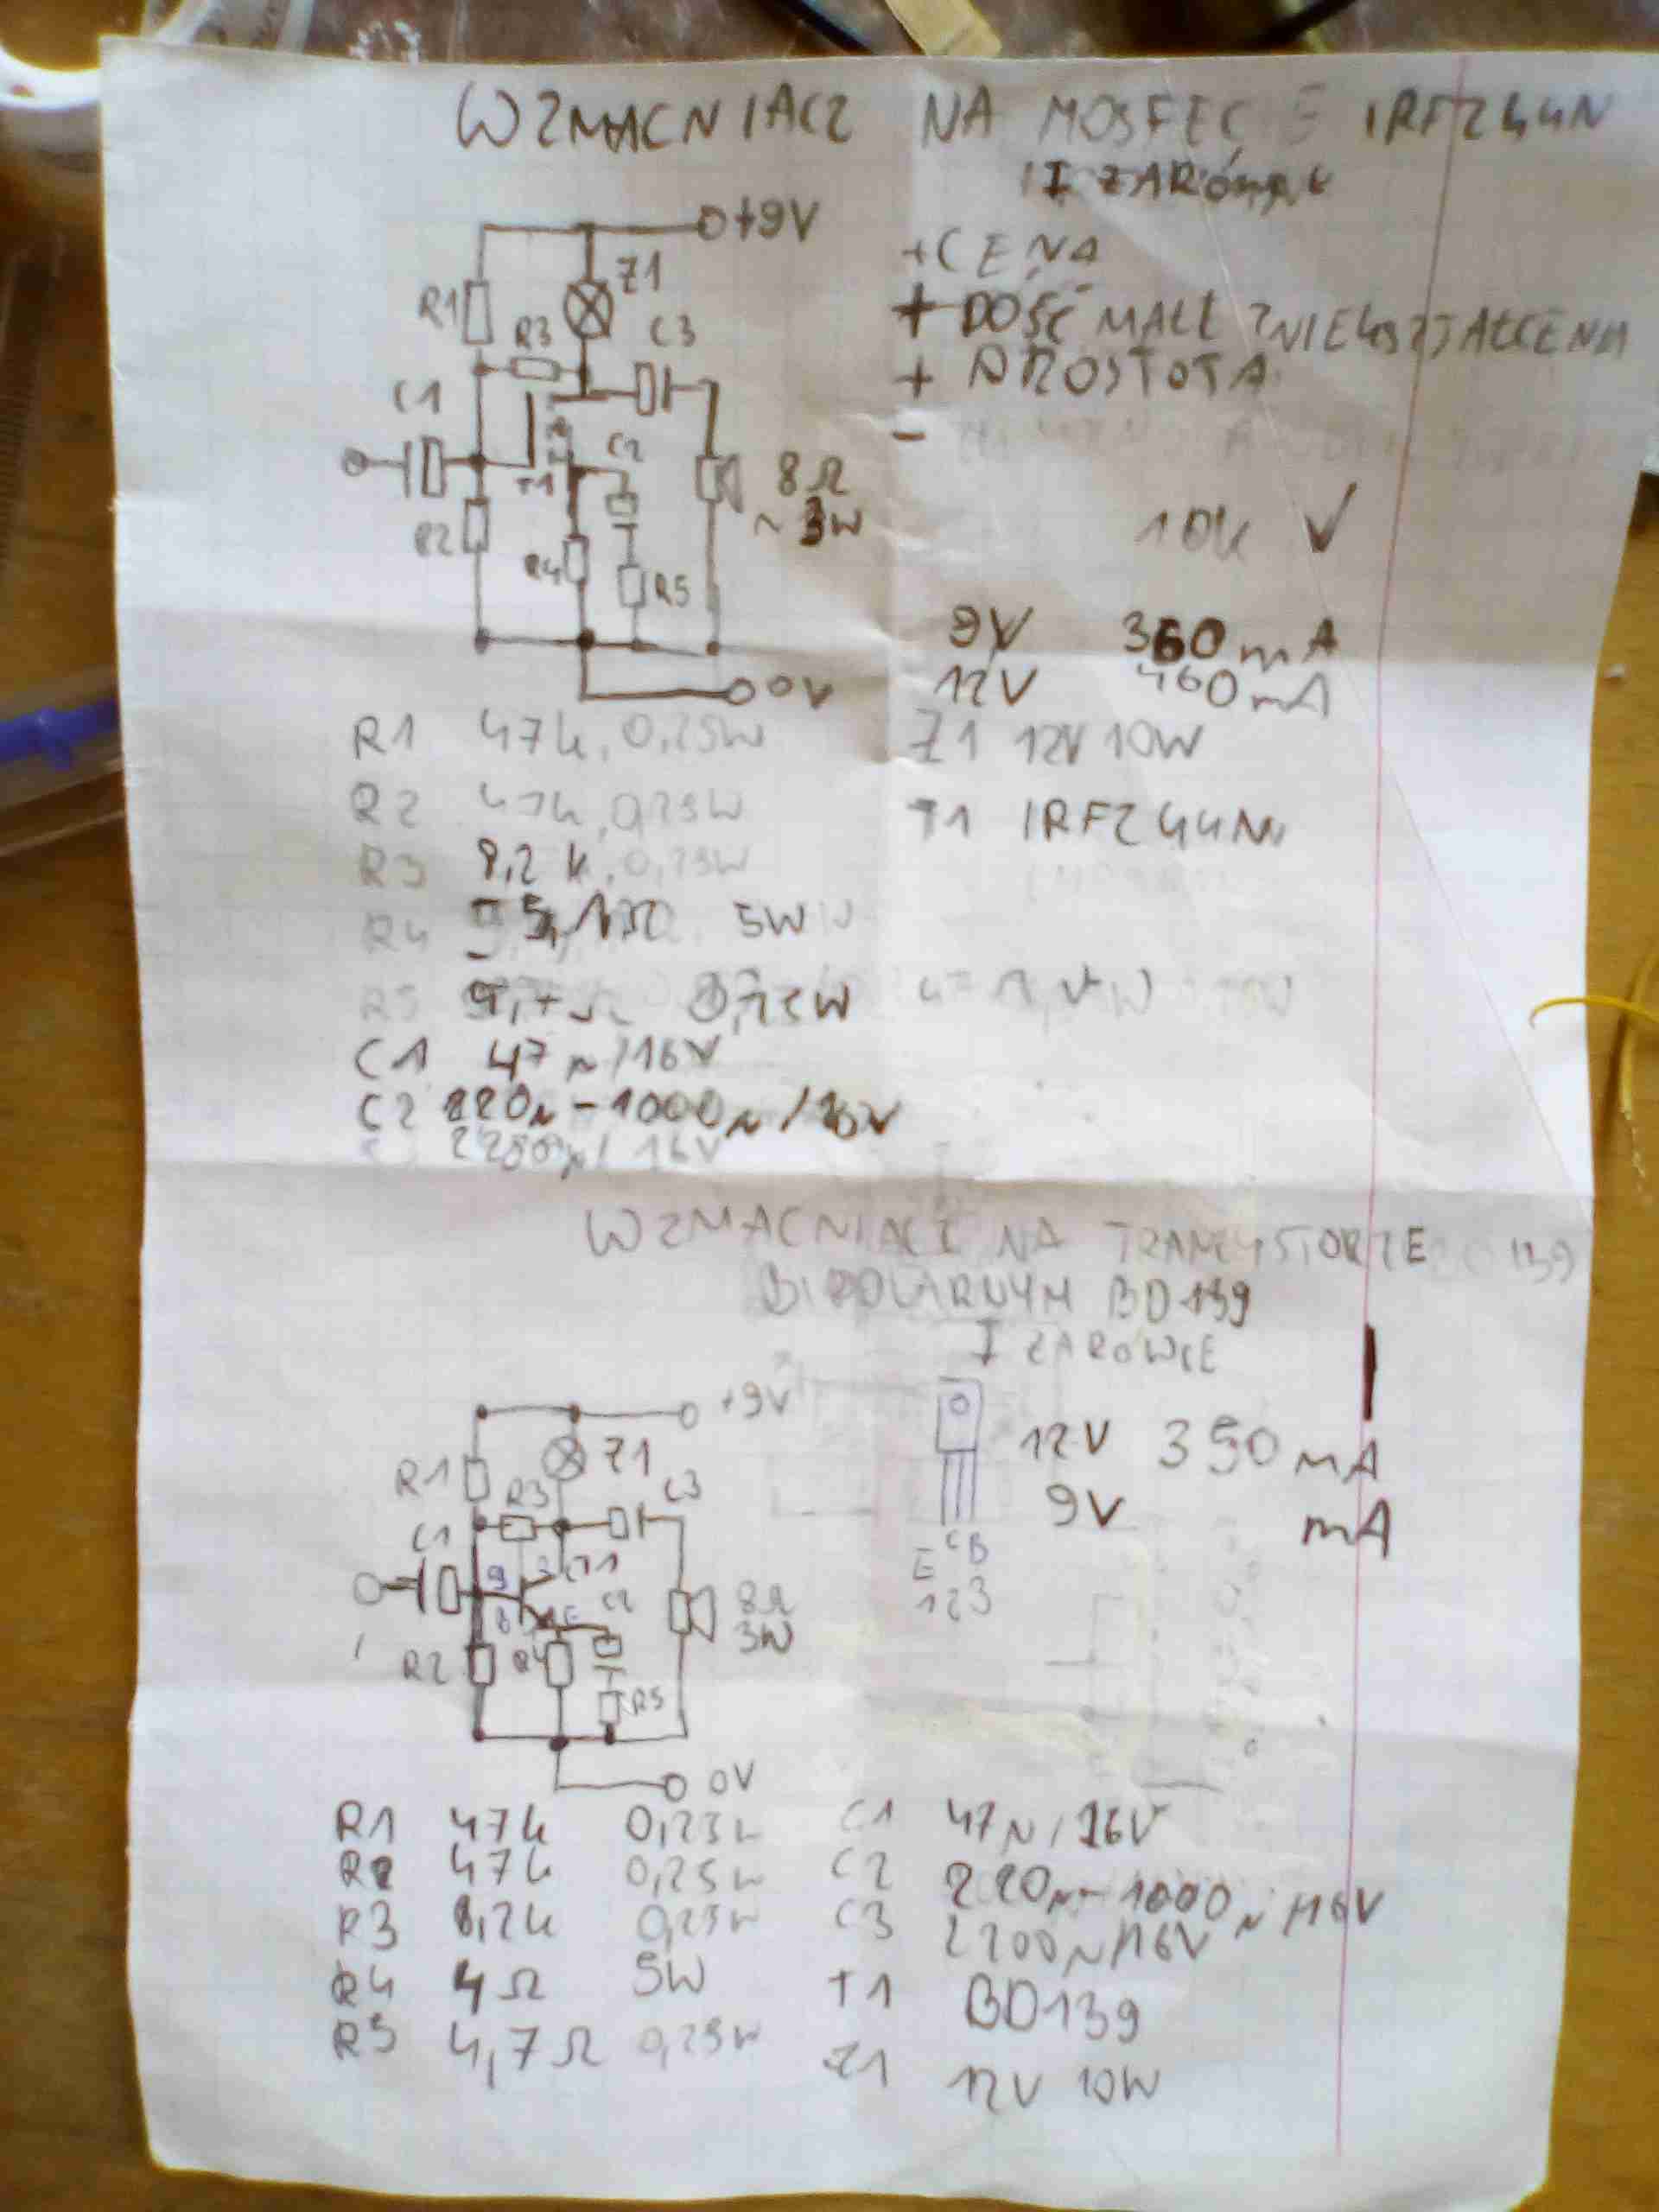 WZMACNIACZ NA MOSFEC E IRFZ44N
I ŻARÓWCE
+9V
Z1
R1
R3
C3
C1
C2
T1
8Ω
~ 3W
R2
R4
R5
0V
+ CENA
+ DOŚĆ MAŁE ZNIEKSZTAŁCENIA
+ PROSTOTA
-
10k ✓
9V 360mA
12V 460mA
R1 47k, 0,25W
Z1 12V 10W
R2 47k, 0,25W
T1 IRFZ44N
R3 8,2k, 0,25W
R4 5W
R5
C1 47µ/16V
C2 220µ-1000µ/16V
2200µ/16V
WZMACNIACZ NA TRANZYSTORZE
BIPOLARNYM BD139
I ŻARÓWCE
+9V
R1
Z1
R3
C3
C1
B
C
T1
E
C2
8Ω
3W
R2
R4
R5
0V
12V 350mA
9V mA
E C B
1 2 3
R1 47k 0,25W
R2 47k 0,25W
R3 8,2k 0,25W
R4 4Ω 5W
R5 4,7Ω 0,25W
C1 47µ/16V
C2 220µ-1000µ/16V
C3 2200µ/16V
T1 BD139
Z1 12V 10W